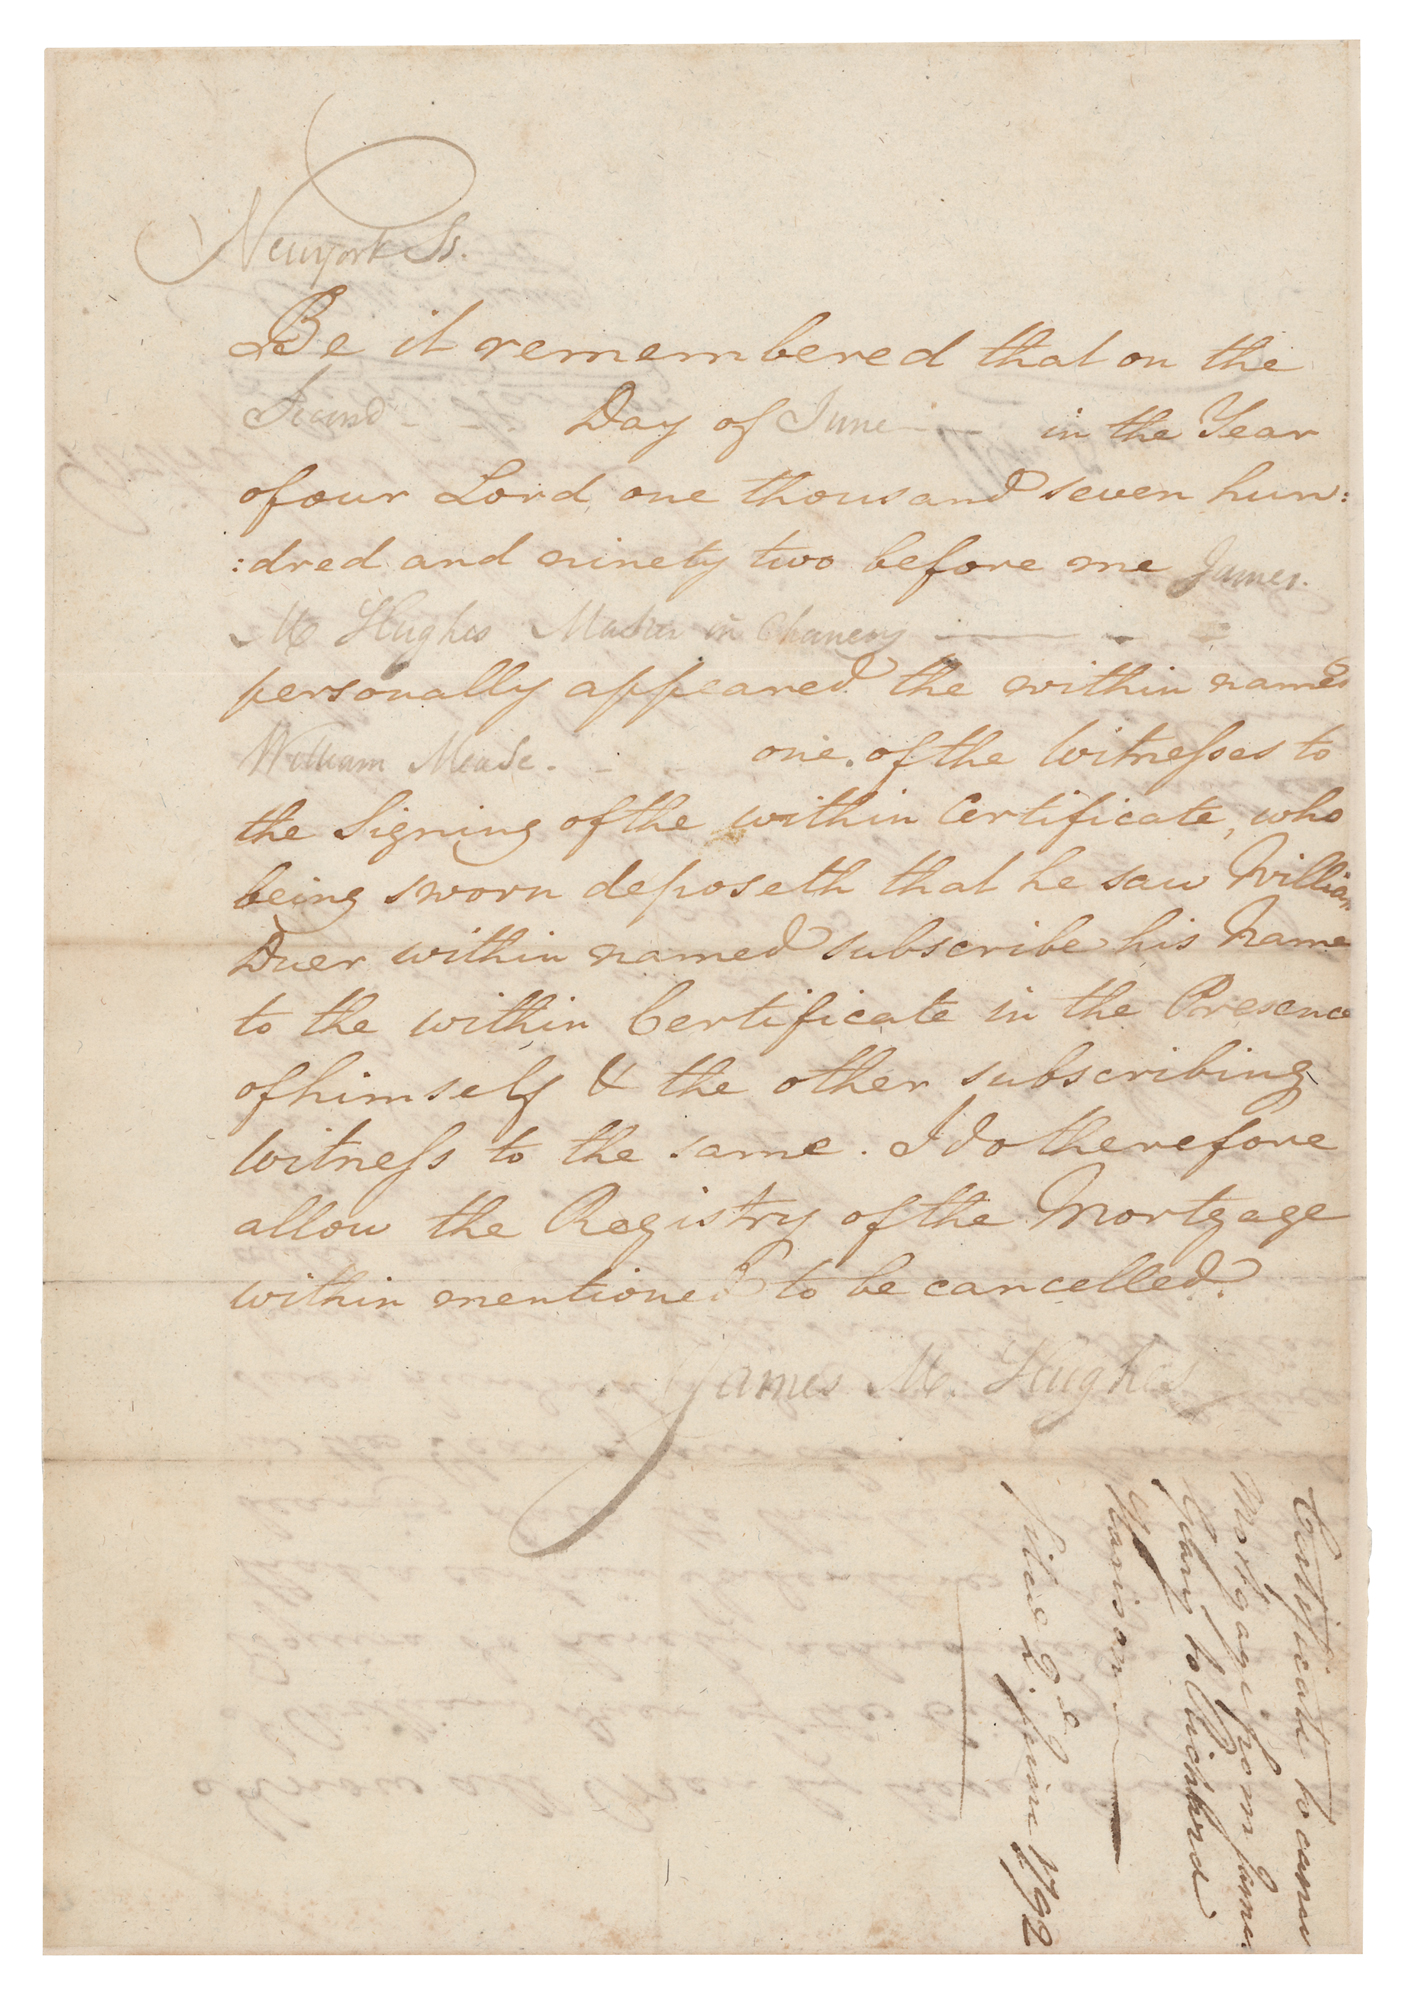 Newyork Ss.
Be it remembered that on the
Second Day of June in the Year
of our Lord one thousand seven hun:
:dred and ninety two before me James
M Hughes Master in Chancery
personally appeared the within named
William Meade. one of the Witnesses to
the Signing of the within Certificate, who
being sworn deposeth that he saw William
Duer within named subscribe his Name
to the within Certificate in the Presence
of himself & the other subscribing
Witness to the same. I do therefore
allow the Registry of the Mortgage
within mentioned to be cancelled.
James M. Hughes
Certificate to cancel
Mortgage from James
to Richard
Harison
filed 2.d June 1792